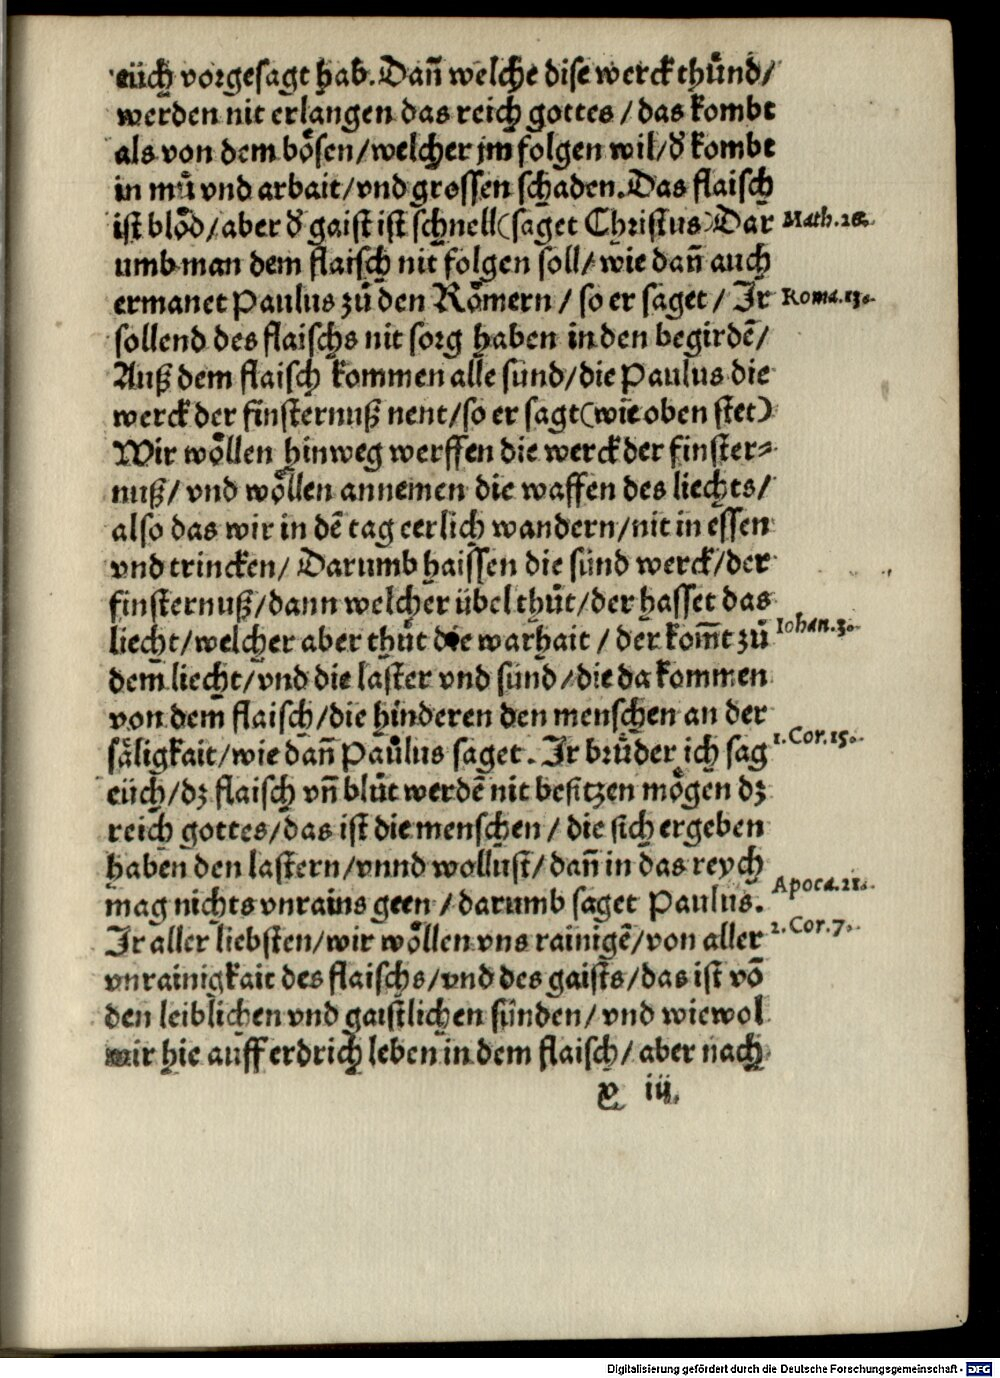 eüch vorgesagt hab. Dañ welche dise werck thůnd/
werden nit erlangen das reich gottes / das kombt
als von dem bösen/welcher jm folgen wil/d̕ kombt
in mů vnd arbait/vnd grossen schaden. Das flaisch
ist blöd/aber d̕ gaist ist schnell(saget Christus)Dar
Math. 26.
umb man dem flaisch nit folgen soll/ wie dañ auch
ermanet Paulus zů den Römern / so er saget / Ir
Roma. 13.
sollend des flaischs nit sorg haben in den begirdē/
Auß dem flaisch kommen alle sünd/die Paulus die
werck der finsternuß nent/so er sagt(wie oben stet)
Wir wöllen hinweg werffen die werck der finster⸗
nuß/ vnd wöllen annemen die waffen des liechts/
also das wir in dē tag eerlich wandern/nit in essen
vnd trincken/ Darumb haissen die sünd werck/der
finsternuß/dann welcher übel thůt/der hasset das
liecht/welcher aber thůt die warhait / der kom̄t zů
Iohan. 3.
dem liecht/vnd die laster vnd sünd/die da kommen
von dem flaisch/die hinderen den menschen an der
säligkait/wie dañ Paulus saget. Ir brůder ich sag
1. Cor. 15.
eüch/dz flaisch vñ blůt werdē nit besitzen mögen dz
reich gottes/das ist die menschen / die sich ergeben
haben den lastern/vnnd wollust/dañ in das reych
mag nichts vnrains geen / darumb saget Paulus.
Apoca. 21.
Ir aller liebsten/wir wöllen vns rainigē/von aller
2. Cor. 7.
vnrainigkait des flaischs/vnd des gaists/das ist vō
den leiblichen vnd gaistlichen sünden/ vnd wiewol
wir hie auff erdrich leben in dem flaisch/ aber nach
y iij.
Digitalisierung gefördert durch die Deutsche Forschungsgemeinschaft - DFG